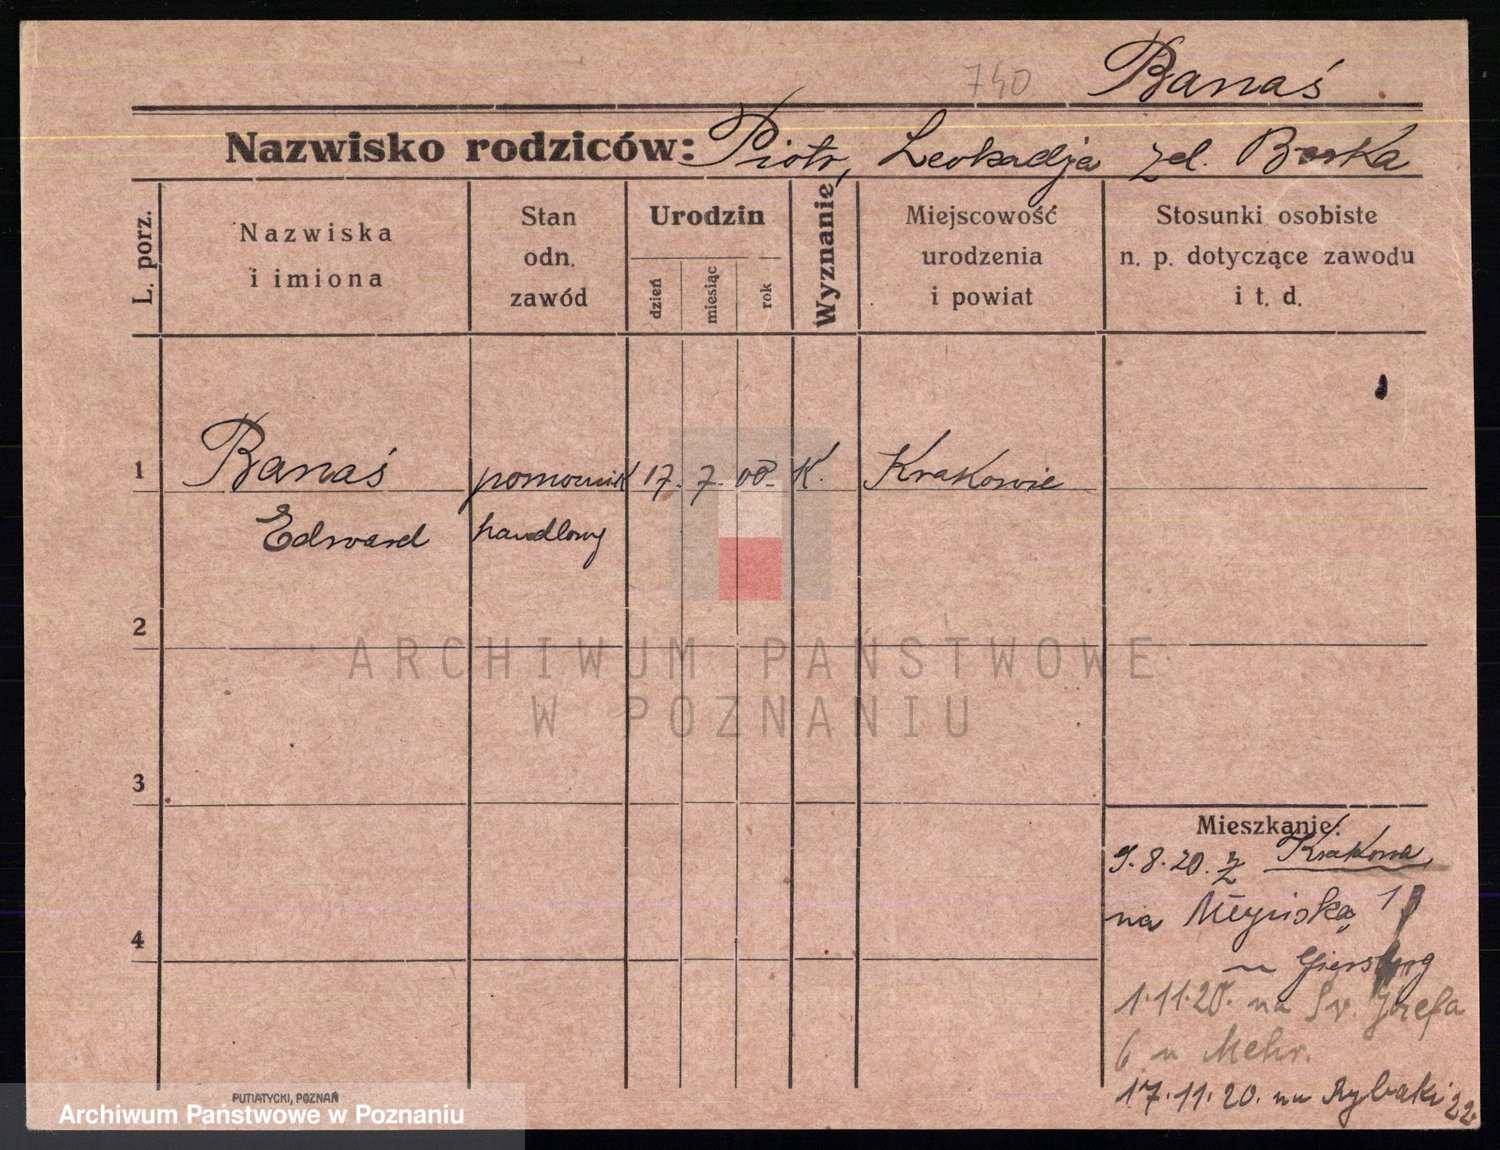 740 Banaś
Nazwisko rodziców: Piotr, Leokadja
L. porz.
Nazwiska
i imiona
Stan
odn.
zawód
Urodzin
dzień
miesiąc
rok
Wyznanie
Miejscowość
urodzenia
i powiat
Stosunki osobiste
n. p. dotyczące zawodu
i t. d.
1 Banaś pomocnik 17. 7. 00. K. Krakowie
Edward handlowy
2
3
4
ARCHIWUM PAŃSTWOWE
W POZNANIU
Mieszkanie:
9.8.20. z Krakowa
na
1.11.20. na Św. Józefa
6 u Mehr.
17.11.20. na Rybaki 22
PUTIATYCKI, POZNAŃ
Archiwum Państwowe w Poznaniu